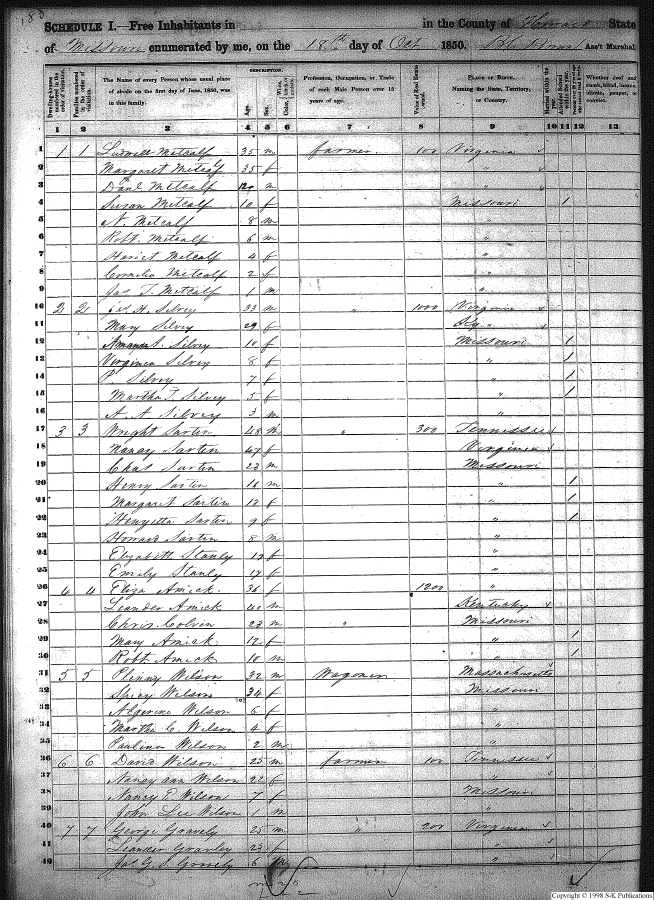 SCHEDULE I.—Free Inhabitants in in the County of Howard State
of Missouri enumerated by me, on the 18th day of Oct 1850. Ass't Marshal.
DESCRIPTION.
Dwelling-houses numbered in the order of visitation.
Families numbered in the order of visitation.
The Name of every Person whose usual place of abode on the first day of June, 1850, was in this family.
Age.
Sex.
Color,
Profession, Occupation, or Trade of each Male Person over 15 years of age.
Value of Real Estate owned.
PLACE OF BIRTH. Naming the State, Territory, or Country.
Married within the year.
Whether deaf and dumb, blind, insane, idiotic, pauper, or convict.
1 2 3 4 5 6 7 8 9 10 11 12 13
1 1 1 Metcalf 35 m farmer 100 Virginia
2 Margaret Metcalf 35 f "
3 Danl Metcalf m "
4 Susan Metcalf 10 f Missouri 1
5 N. Metcalf 8 m "
6 Robt. Metcalf 6 m "
7 Hariet Metcalf 4 f "
8 Cornelia Metcalf 2 f "
9 Jas T. Metcalf 1 m "
10 2 2 Jas H. Silvey 33 m " 1000 Virginia
11 Mary Silvey 29 f Ky "
12 Amanda Silvey 10 f Missouri 1
13 Virginia Silvey 8 f " 1
14 Silvey 7 f " 1
15 Martha T. Silvey 5 f " 1
16 A. A Silvey 3 m "
17 3 3 Wright Sartin 48 m " 300 Tennessee
18 Nancy Sartin 47 f Virginia
19 Chas Sartin 23 m Missouri
20 Henry Sartin 16 m " 1
21 Margaret Sartin 13 f " 1
22 Henryetta Sartin 9 f " 1
23 Howard Sartin 8 m "
24 Elizabeth Stanly 19 f "
25 Emily Stanly 17 f "
26 4 4 Eliza Amick 36 f 1200 "
27 Leander Amick 40 m Kentucky
28 Chris. Colvin 23 m " Missouri
29 Mary Amick 12 f " 1
30 Robt. Amick 10 m " 1
31 5 5 Plenny Wilson 32 m Wagoner Massachusetts
32 Wilson 34 f Missouri
33 Algerine Wilson 6 f "
34 Martha C. Wilson 4 f "
35 Paulina Wilson 2 m "
36 6 6 David Wilson 25 m farmer 100 Tennessee
37 Nancy ann Wilson 22 f "
38 Nancy E. Wilson 7 f Missouri
39 John Lee Wilson 1 m "
40 7 7 George Gravely 25 m " 200 Virginia
41 Leander Gravley 23 f "
42 Jas G. S. Gravely 6 m "
Copyright © 1998 S-K Publications